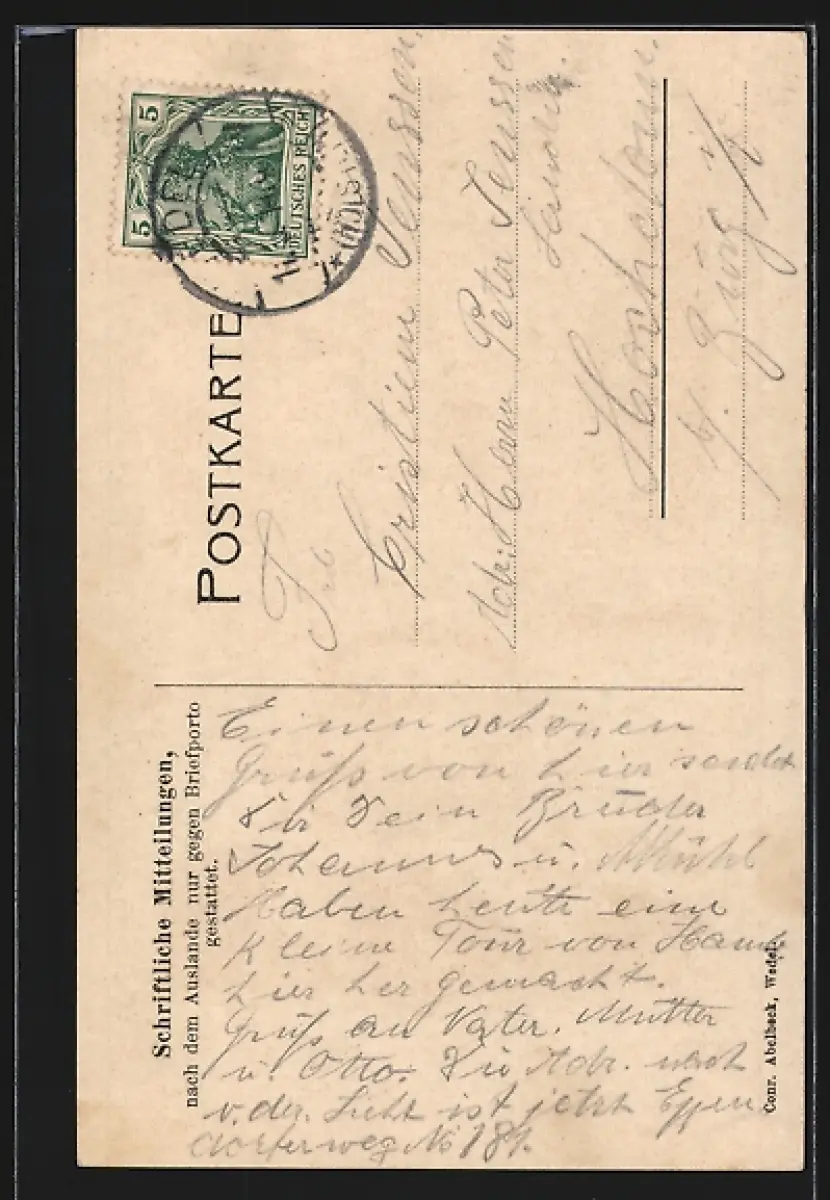 POSTKARTE
5
5
DEUTSCHES REICH
Frl
Cristiene Jenssen.
Adr: Herrn Peter Jenssen
Hochdonn.
b/ Burg i/
Schriftliche Mitteilungen,
nach dem Auslande nur gegen Briefporto
gestattet.
Einen schönen
Gruß von hier sendet
Dir Dein Bruder
Johannes u.
Haben heute eine
kleine Tour von Hamb
hier her gemacht.
Gruß an Vater. Mutter
u. Otto. Die Adr. nach
v. der ist jetzt Eppen
dorferweg No 181.
Conr. Abelbeck, Wedel.